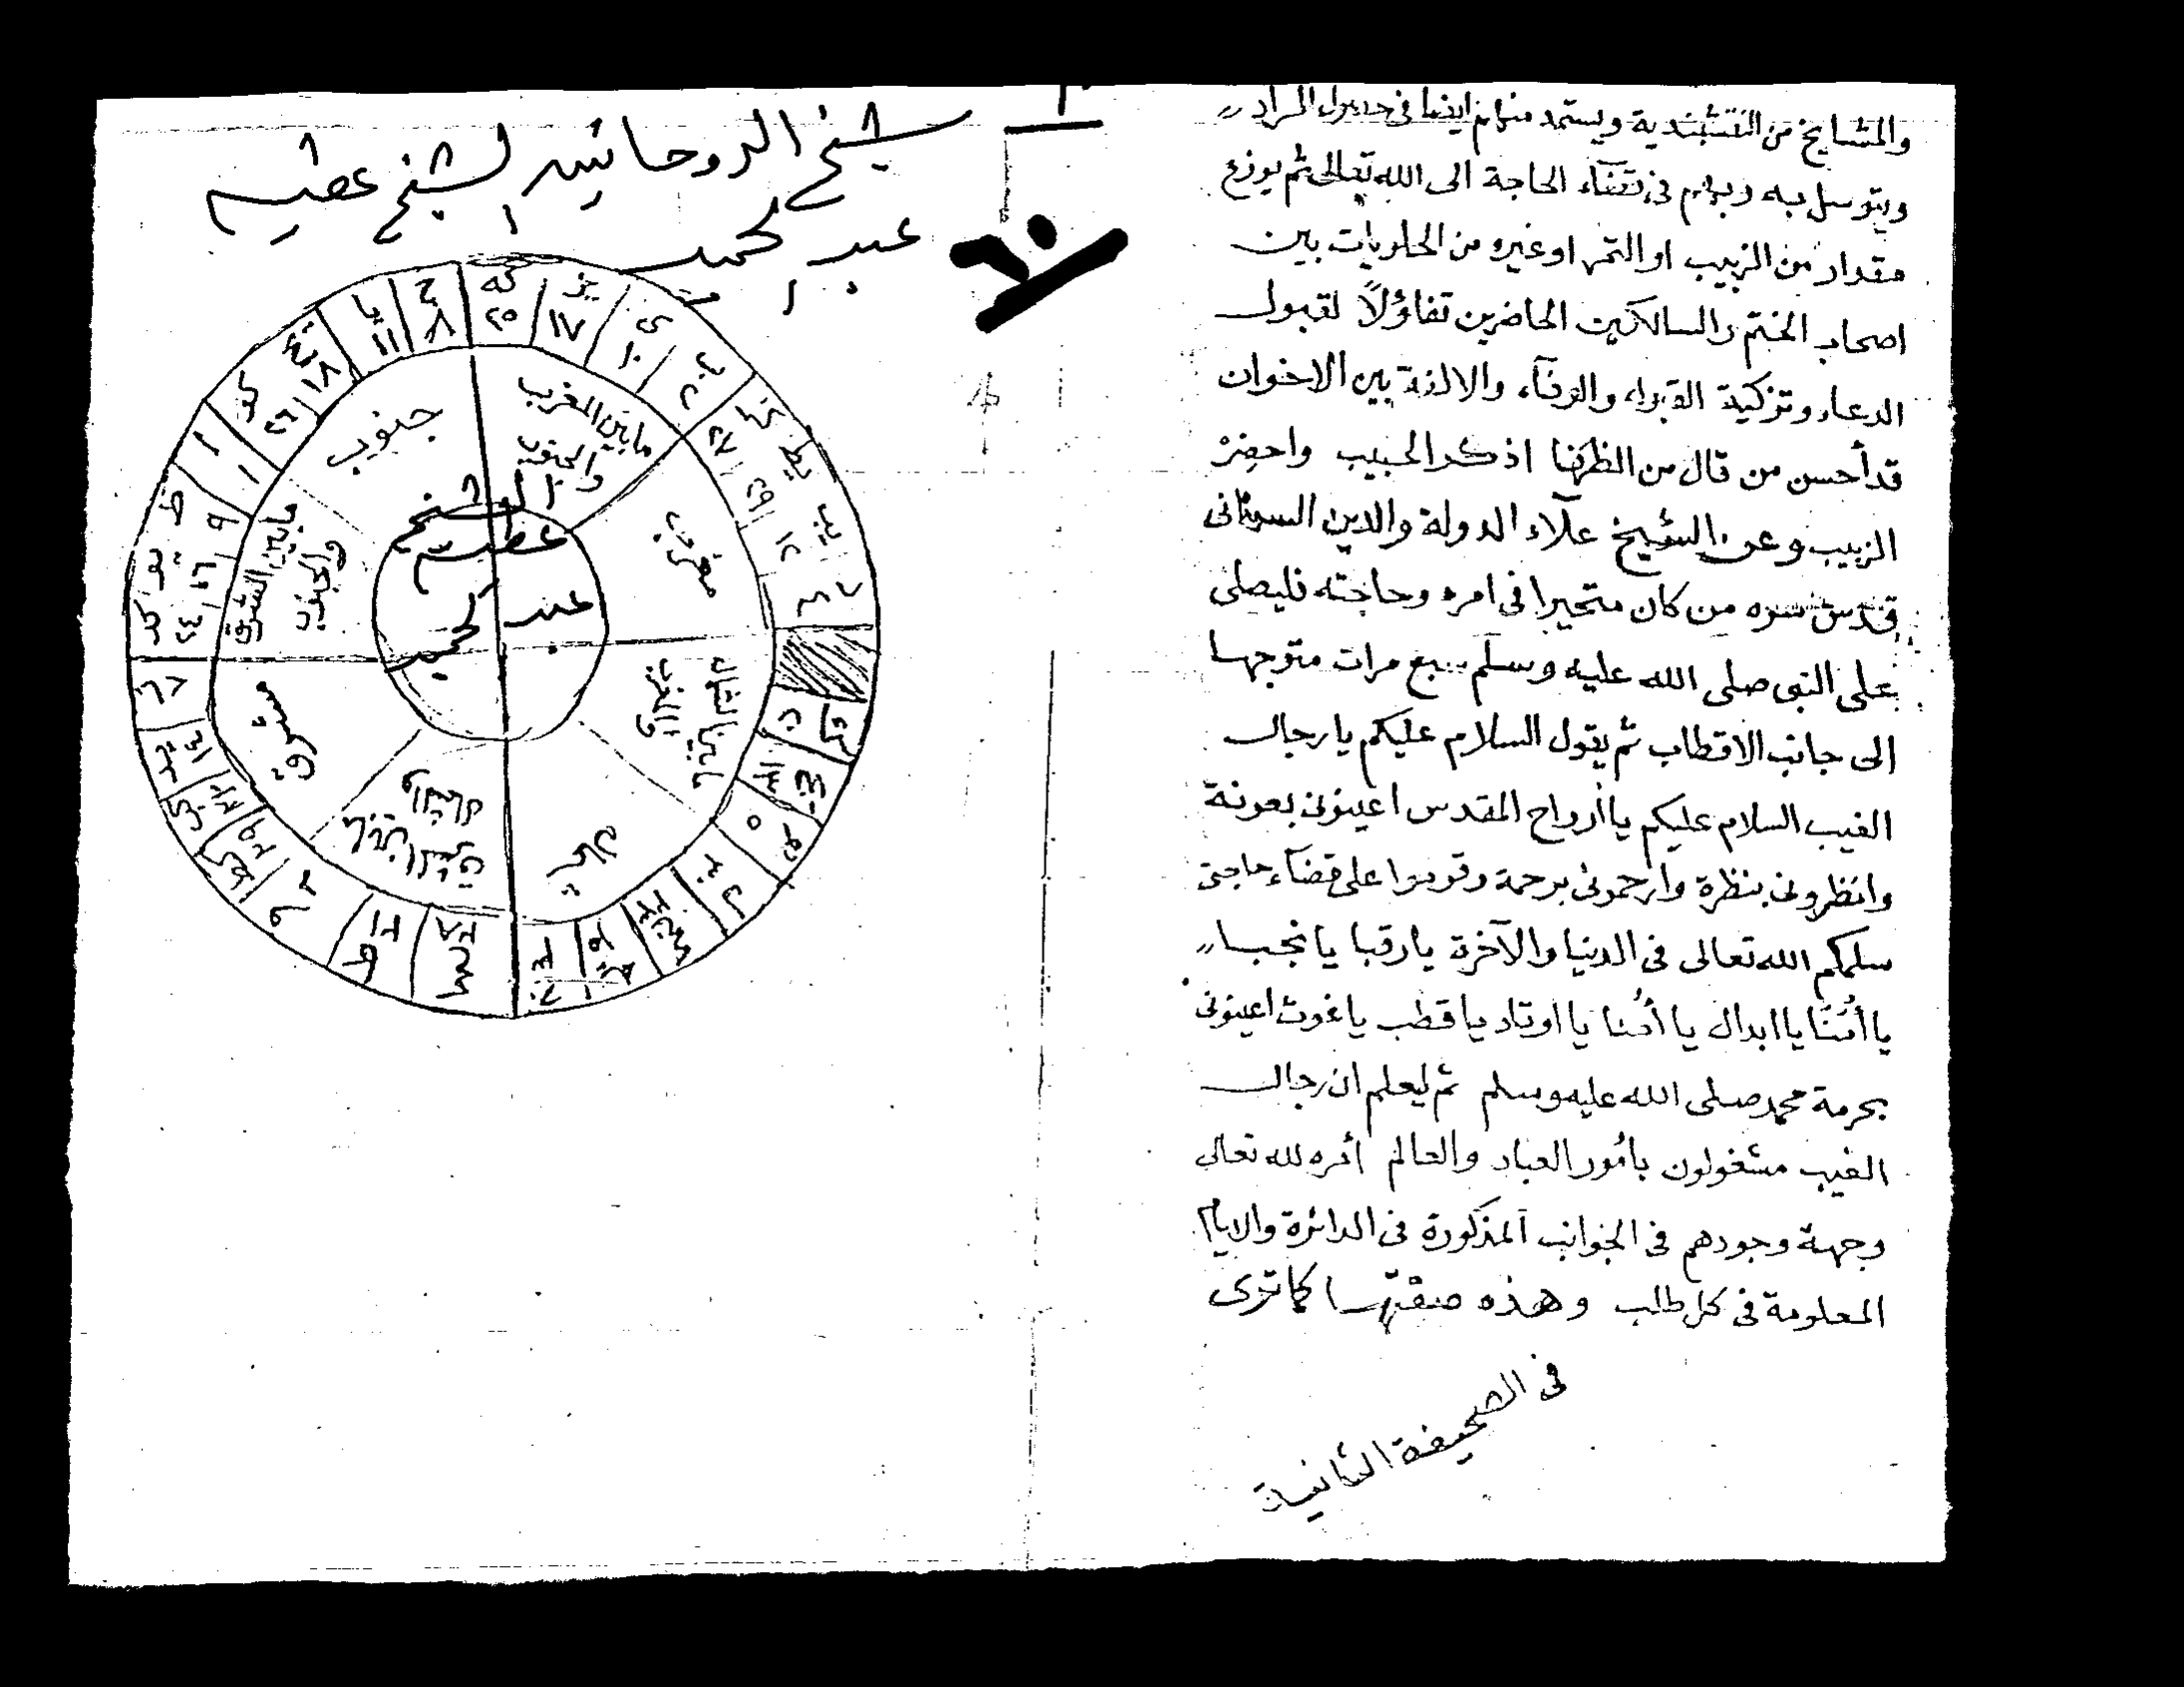 والمشايخ من النقشبندية ويستمد منهم ايضا فى حصول المراد
ويتوسل به وبهم فى قضاء الحاجة الى الله تعالى ثم يوزع
مقدار من الزبيب او التمر او غيره من الحلويات بين
اصحاب الختم والسالكين الحاضرين تفاؤلاً لقبول
الدعاء وتزكية القراء والوفآء والالفة بين الاخوان
قد أحسن من قال من الظرفا اذكر الحبيب واحضِرْ
الزبيب وعن الشيخ علآء الدولة والدين السمنانى
قدس سره من كان متحيرا فى امره وحاجته فليصلى
على النبى صلى الله عليه وسلم سبع مرات متوجهـا
الى جانب الاقطاب ثم يقول السلام عليكم يا رجال
الغيب السلام عليكم يا ارواح المقدس اعينونى بعونة
وانظرونى بنظرة وارحمونى برحمة وقوموا على قضآء حاجتى
سلمكم الله تعالى فى الدنيا والآخرة يا رقبا يا نجبـا
يا أمُنَا يا ابدال يا أمُنا يا اوتاد يا قطب يا غوث اعينونى
بحرمة محمد صلى الله عليه وسلم ثم ليعلم ان رجال
الغيب مشغولون بامُور العباد والعالم أمره لله تعالى
وجهة وجودهم فى الجوانب المذكورة فى الدائرة والايام
المعلومة فى كل طلب وهذه صفتهـا كما ترى
فى الصحيفة الثانية
شيخ الروحانين الشيخ عطيه
عبد الحميد
كه ٢٥
يز ١٧
ى ١٠
ب ٢
كز ٢٧
يط ١٩
يب ١٢
د ٤
يج ١٣
ه ٥
ل ٣٠
و ٦
كا ٢١
كح ٢٨
يد ١٤
ز ٧
كد ٢٤
يو ١٦
ط ٩
ا ١
كو ٢٦
يح ١٨
يا ١١
ح ٨
ما بين المغرب
والجنوب
مغرب
ما بين الشمال
والمغرب
شمال
مشرق
ما بين الشرق
والجنوب
جنوب
الشيخ
عطيه
عبد
الحميد